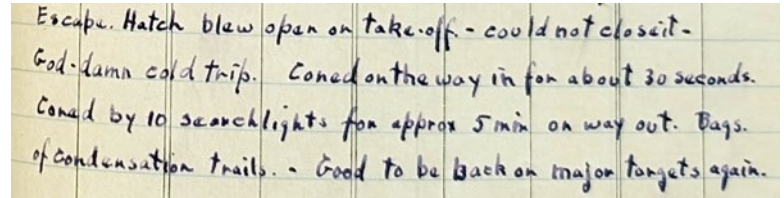 Escape. Hatch blew open on take-off. - could not close it -
God-damn cold trip. Coned on the way in for about 30 seconds.
Coned by 10 searchlights for approx 5 min on way out. Bags.
of condensation trails. - Good to be back on major targets again.